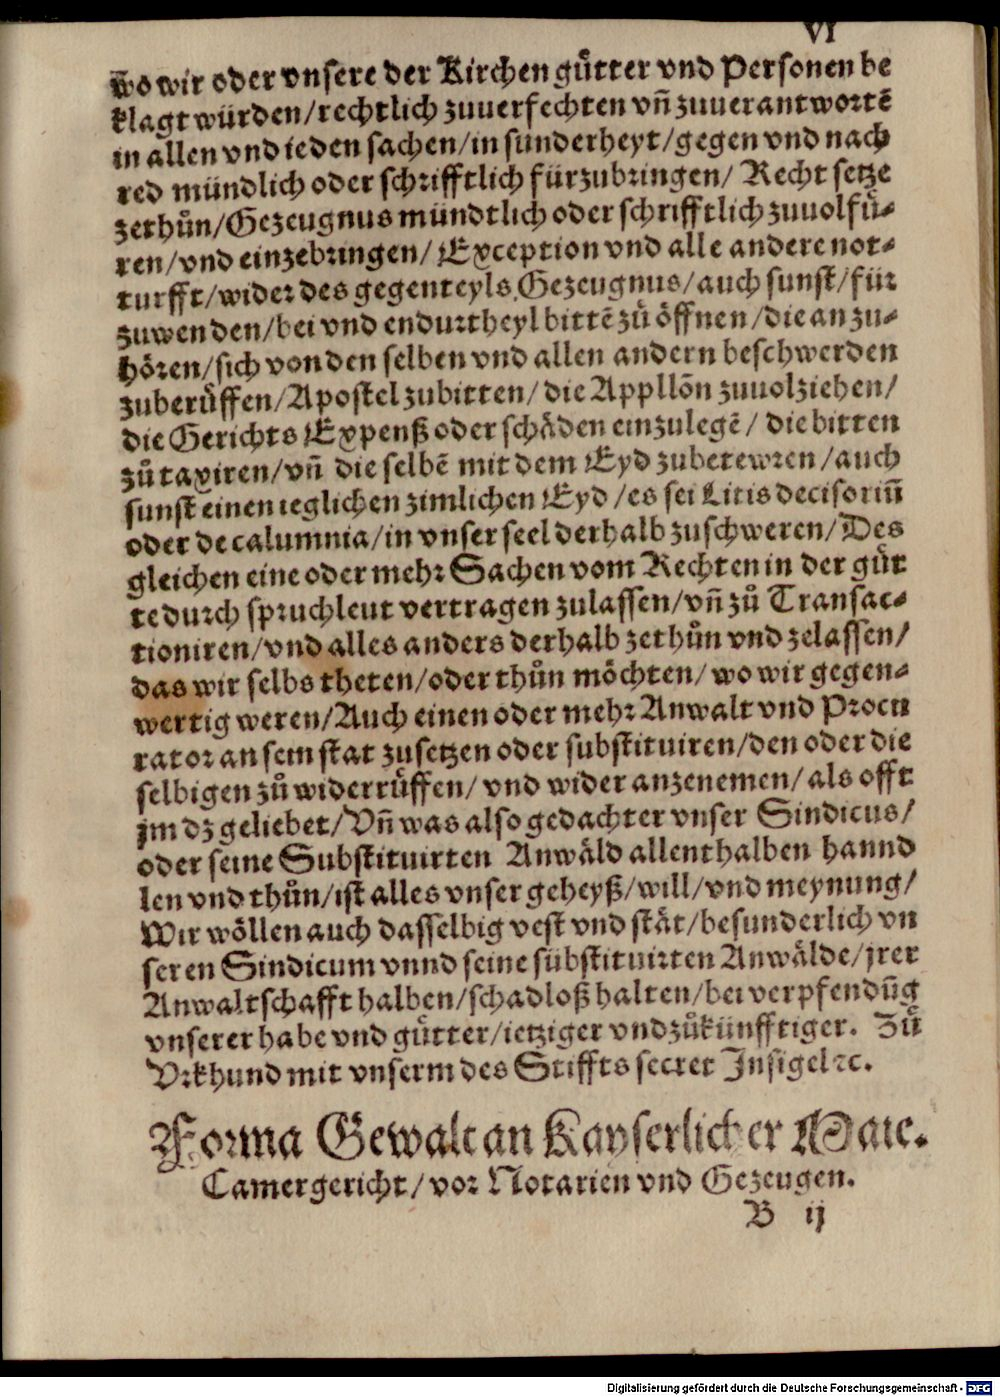 VI
wo wir oder vnsere der Kirchen gütter vnd Personen be
klagt würden/rechtlich zuuerfechten vn̄ zuuerantwortē
in allen vnd ieden sachen/in sunderheyt/gegen vnd nach
red mündlich oder schrifftlich fürzubringen/ Recht setze
zethůn/Gezeugnus mündtlich oder schrifftlich zuuolfü⸗
ren/vnd einzebringen/ Exception vnd alle andere not⸗
turfft/wider des gegenteyls Gezeugnus/auch sunst/für
zuwenden/bei vnd endurtheyl bittē zů öffnen/die anzu⸗
hören/sich von den selben vnd allen andern beschwerden
zuberůffen/Apostel zubitten/ die Appllōn zuuolziehen/
die Gerichts Expenß oder schäden einzulegē/ die bitten
zů taxiren/vn̄ die selbē mit dem Eyd zubetewren/auch
sunst einen ieglichen zimlichen Eyd/es sei Litis decisoriū
oder de calumnia/in vnser seel derhalb zuschweren/Des
gleichen eine oder mehr Sachen vom Rechten in der güt
te durch spruchleut vertragen zulassen/vn̄ zů Transac⸗
tioniren/vnd alles anders derhalb zethůn vnd zelassen/
das wir selbs theten/oder thůn möchten/ wo wir gegen⸗
wertig weren/Auch einen oder mehr Anwalt vnd Procu
rator an sein stat zusetzen oder substituiren/den oder die
selbigen zů widerrůffen/ vnd wider anzenemen/ als offt
jm dz geliebet/Vn̄ was also gedachter vnser Sindicus/
oder seine Substituirten Anwäld allenthalben hannd
len vnd thůn/ist alles vnser geheyß/will/vnd meynung/
Wir wöllen auch dasselbig vest vnd stät/besunderlich vn
seren Sindicum vnnd seine substituirten Anwälde/jrer
Anwaltschafft halben/schadloß halten/bei verpfendūg
vnserer habe vnd gütter/ietziger vnd zůkünfftiger. Zů
Vrkhund mit vnserm des Stiffts secret Insigel ꝛc.
Forma Gewalt an Kayserlicher Maie.
Camergericht/vor Notarien vnd Gezeugen.
B ij
Digitalisierung gefördert durch die Deutsche Forschungsgemeinschaft - DFG